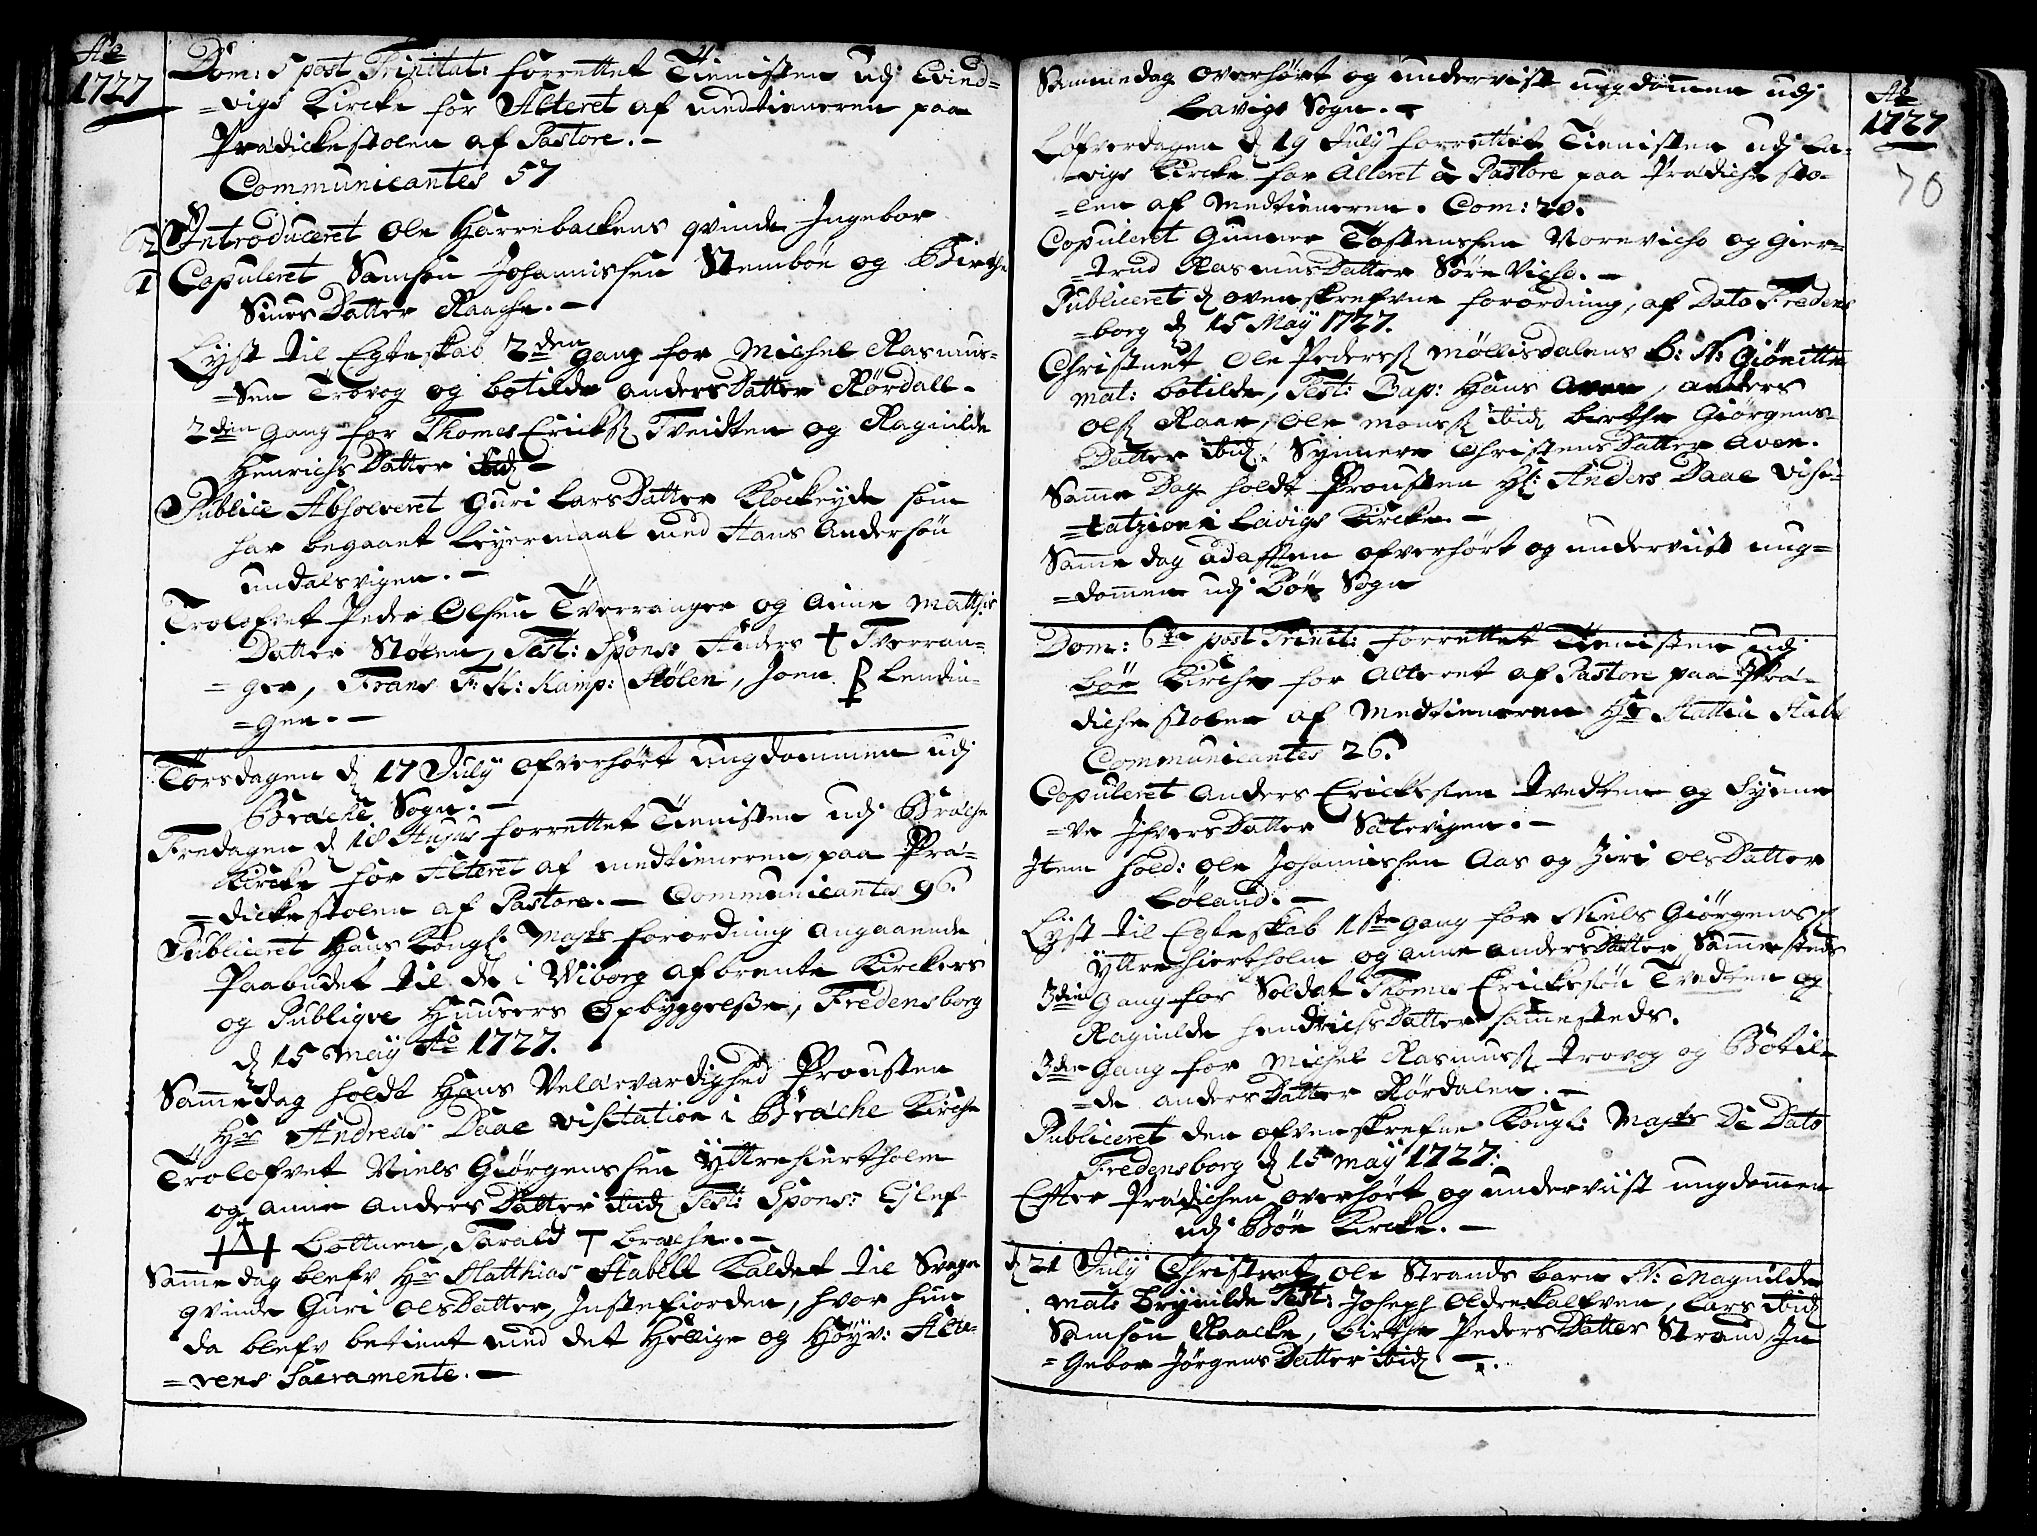 Ao
1727
Dom: 5 post Trinitat: forrettet Tienisten udj Evind-
=vigs Kircke for Alteret af medtieneren paa
Prædickestolen af Pastore. -
Communicantes 57
2 Introduceret Ole Harrebackens qvinde Ingebor
1 Copuleret Samson Johannissen Stembøe og Birthe
Siurs Datter Raache. -
Lyst til Egteskab 2den gang for Michel Rasmus-
=sen Trovog og botilde Anders Datter Rørdall-
2den gang for Thomes Ericks: Tveidten og Ragnilde
Henrichs Datter ibid -
Publice Absolveret Guri Lars Datter Klockeyde som
har begaaet Leyermaal med Hans Andersøn
undalsvigen. -
Trolofvet Peder Olsen Tverranger og Anne Matthis
Datter Stølen, Test: Spons: Anders + Tverran-
=ger, Frans F: K: Kamp: Stølen, Joen P Lendin-
=gen. -
Torsdagen d 17 July ofverhørt ungdommen udj
Bræche Sogn. -
Fredagen d 18 Hujus forrettet Tienisten udj Bræche
Kircke for Alteret af medtieneren, paa Præ-
=dickestolen af Pastore. - Communicantes 96.
Publiceret Hans Kongl: Majts forordning angaaende
Paabudet til de i Wiborg afbrente Kirckers
og Publiqve Huusers Opbyggelsse, Fredensborg
d 15 May Ao 1727.
Samme dag holdt Hans Velærværdighed Prousten
Hr Andreas Daae visitation i Bræche Kirche
Trolofvet Niels Giørgenssen Yttrehiertholm
og anne Anders Datter ibid Test: Spons: Ejlef
Bottnen, Farald T bræche. -
Samme dag blefv Hr Matthias Stabell Kaldet til Svage
qvinde Guri Ols Datter, Instefiorden, hvor hun
da blefv betient med det Hellige og Høyv: Alte-
=rens Sacramente. -
Samme dag overhørt og undervist ungdommen udj
Lavigs Sogn. -
Løfverdagen d 19 July forrettet Tienisten udj La-
=vigs Kircke for Alteret a Pastore paa Prædiche sto-
=len af Medtieneren. Com: 20.
Copuleret Gunner Tostenssen Norevicho og Gier-
=trud Rasmus Datter Søre Viche. -
Publiceret d ovenskrefvne forordning, af Dato Fredens
=borg d 15 May 1727.
Christnet Ole Peders: Møllisdalens B: N: Giønitte
mat: botilde, Test: Bap: Hans Aven, anders
Ols: Raae, Ole monss: ibid birthe Giørgens-
Datter ibid: Synneve Christens Datter Aven.
Samme Dag holdt Prousten Hr: Anders Daae visi-
=tatzion i Lavigs Kircke. -
Samme dag ad aften ofverhørt og underviist ung=
=dommen udj Bøe Sogn
Dom: 6te post Trinit: forrettet Tienisten udj
Bøe Kirche for Alteret af Pastore paa Præ-
diche stolen af Medtieneren Hr Matth: Stabe
Communicantes 26.
Copuleret Anders Erickssen Tvedten og Synne
=ve Ifvers Datter Sætevigen. -
Item sold: Ole Johannissen Aas og Jiri Ols Datter
Løland. -
Lyst til Egteskab 1ste gang for Niels Giørgens:
Yttre hiertholm og Anne Anders Datter, Sammesteds
3die Gang for Soldat Thomes Erickesøn Tvedten og
Ragnilde Hendrichs Datter sammesteds.
3die Gang for Michel Rasmuss: Trovog og Botil=
=de Anders Datter Rørdalen. -
Publiceret den ofvenskrefne Kongl: Majts De Dato
Fredensborg d 15 May 1727.
Effter Prædichen overhørt og underviist ungdommen
udj Bøe Kircke. -
d 21 July Christnet Ole Strands barn N: Magnilde
Mat: Brynilde Test: Joseph Oldrekalfven, Lars ibid
Samson Raacke, Birthe Peders Datter Strand, In
=Gebor Jørgens Datter ibid. -
Ao
1727
70